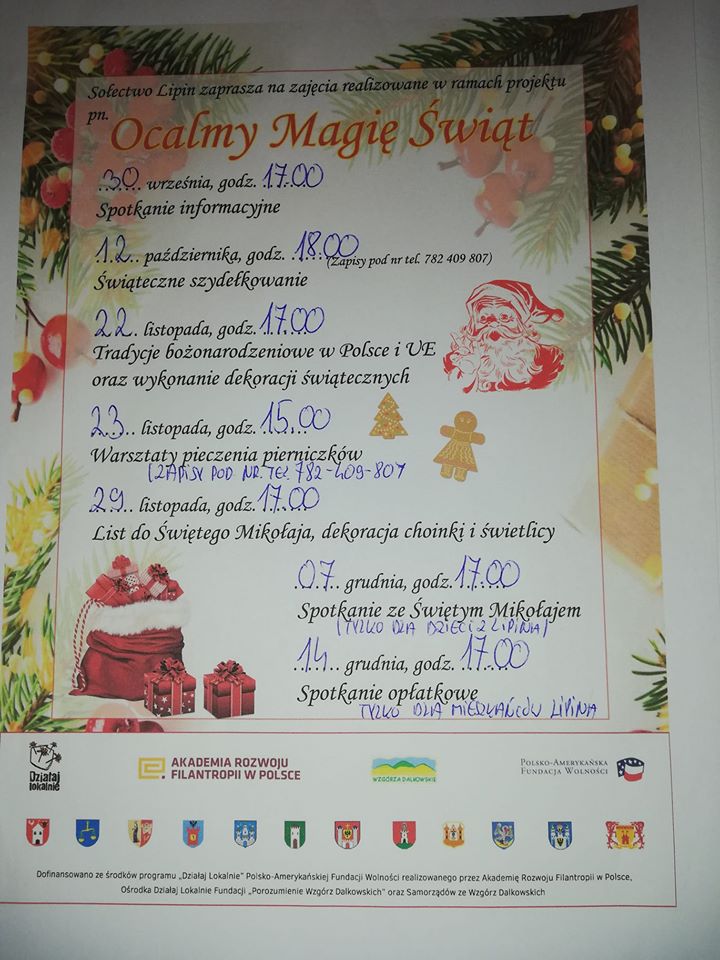 Sołectwo Lipin zaprasza na zajęcia realizowane w ramach projektu
pn. Ocalmy Magię Świąt
30 września, godz. 17.00
Spotkanie informacyjne
12 października, godz. 18.00 (Zapisy pod nr tel. 782 409 807)
Świąteczne szydełkowanie
22 listopada, godz. 17.00
Tradycje bożonarodzeniowe w Polsce i UE
oraz wykonanie dekoracji świątecznych
23 listopada, godz. 15.00
Warsztaty pieczenia pierniczków
(ZAPISY POD NR. TEL. 782-409-807
29 listopada, godz. 17.00
List do Świętego Mikołaja, dekoracja choinki i świetlicy
07 grudnia, godz. 17.00
Spotkanie ze Świętym Mikołajem
(TYLKO DLA DZIECI Z LIPINA)
14 grudnia, godz. 17.00
Spotkanie opłatkowe
TYLKO DLA MIESZKAŃCÓW LIPINA
Działaj
lokalnie
AKADEMIA ROZWOJU
FILANTROPII W POLSCE
WZGÓRZA DALKOWSKIE
POLSKO-AMERYKAŃSKA
FUNDACJA WOLNOŚCI
Dofinansowano ze środków programu „Działaj Lokalnie” Polsko-Amerykańskiej Fundacji Wolności realizowanego przez Akademię Rozwoju Filantropii w Polsce,
Ośrodka Działaj Lokalnie Fundacji „Porozumienie Wzgórz Dalkowskich” oraz Samorządów ze Wzgórz Dalkowskich